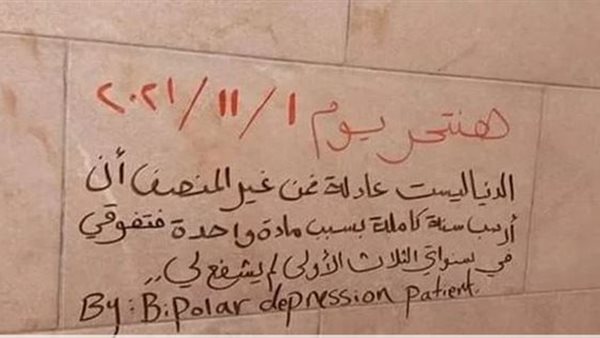 هنتحر يوم ١ / ١١ / ٢٠٢١
الدنيا ليست عادلة فمن غير المنصف أن
أرسب سنة كاملة بسبب مادة واحدة فتفوقي
في سنواتي الثلاث الأولى لم يشفع لي ..
By: Bipolar depression patient.